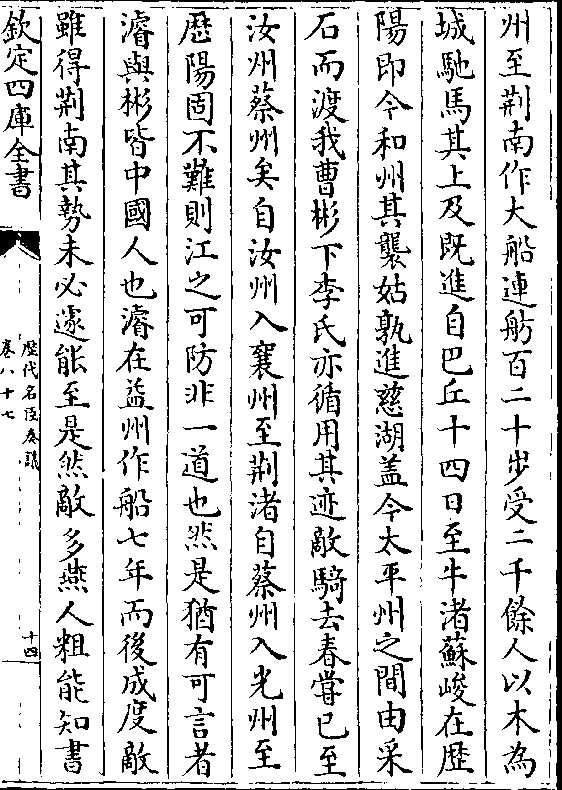 州至荆南作大船連舫百二十歩受二千餘人以木為
城馳馬其上及既進自巴丘十四日至牛渚蘇峻在歴
陽即今和州其襲姑孰進慈湖盖今太平州之間由采
石而渡我曹彬下李氏亦循用其迹敵騎去春嘗已至
汝州蔡州矣自汝州入襄州至荆渚自蔡州入光州至
歴陽固不難則江之可防非一道也然是猶有可言者
濬與彬皆中國人也濬在益州作船七年而後成度敵
雖得荆南其勢未必遂能至是然敵多燕人粗能知書
欽定四庫全書
歴代名臣奏議
卷八十七
十四